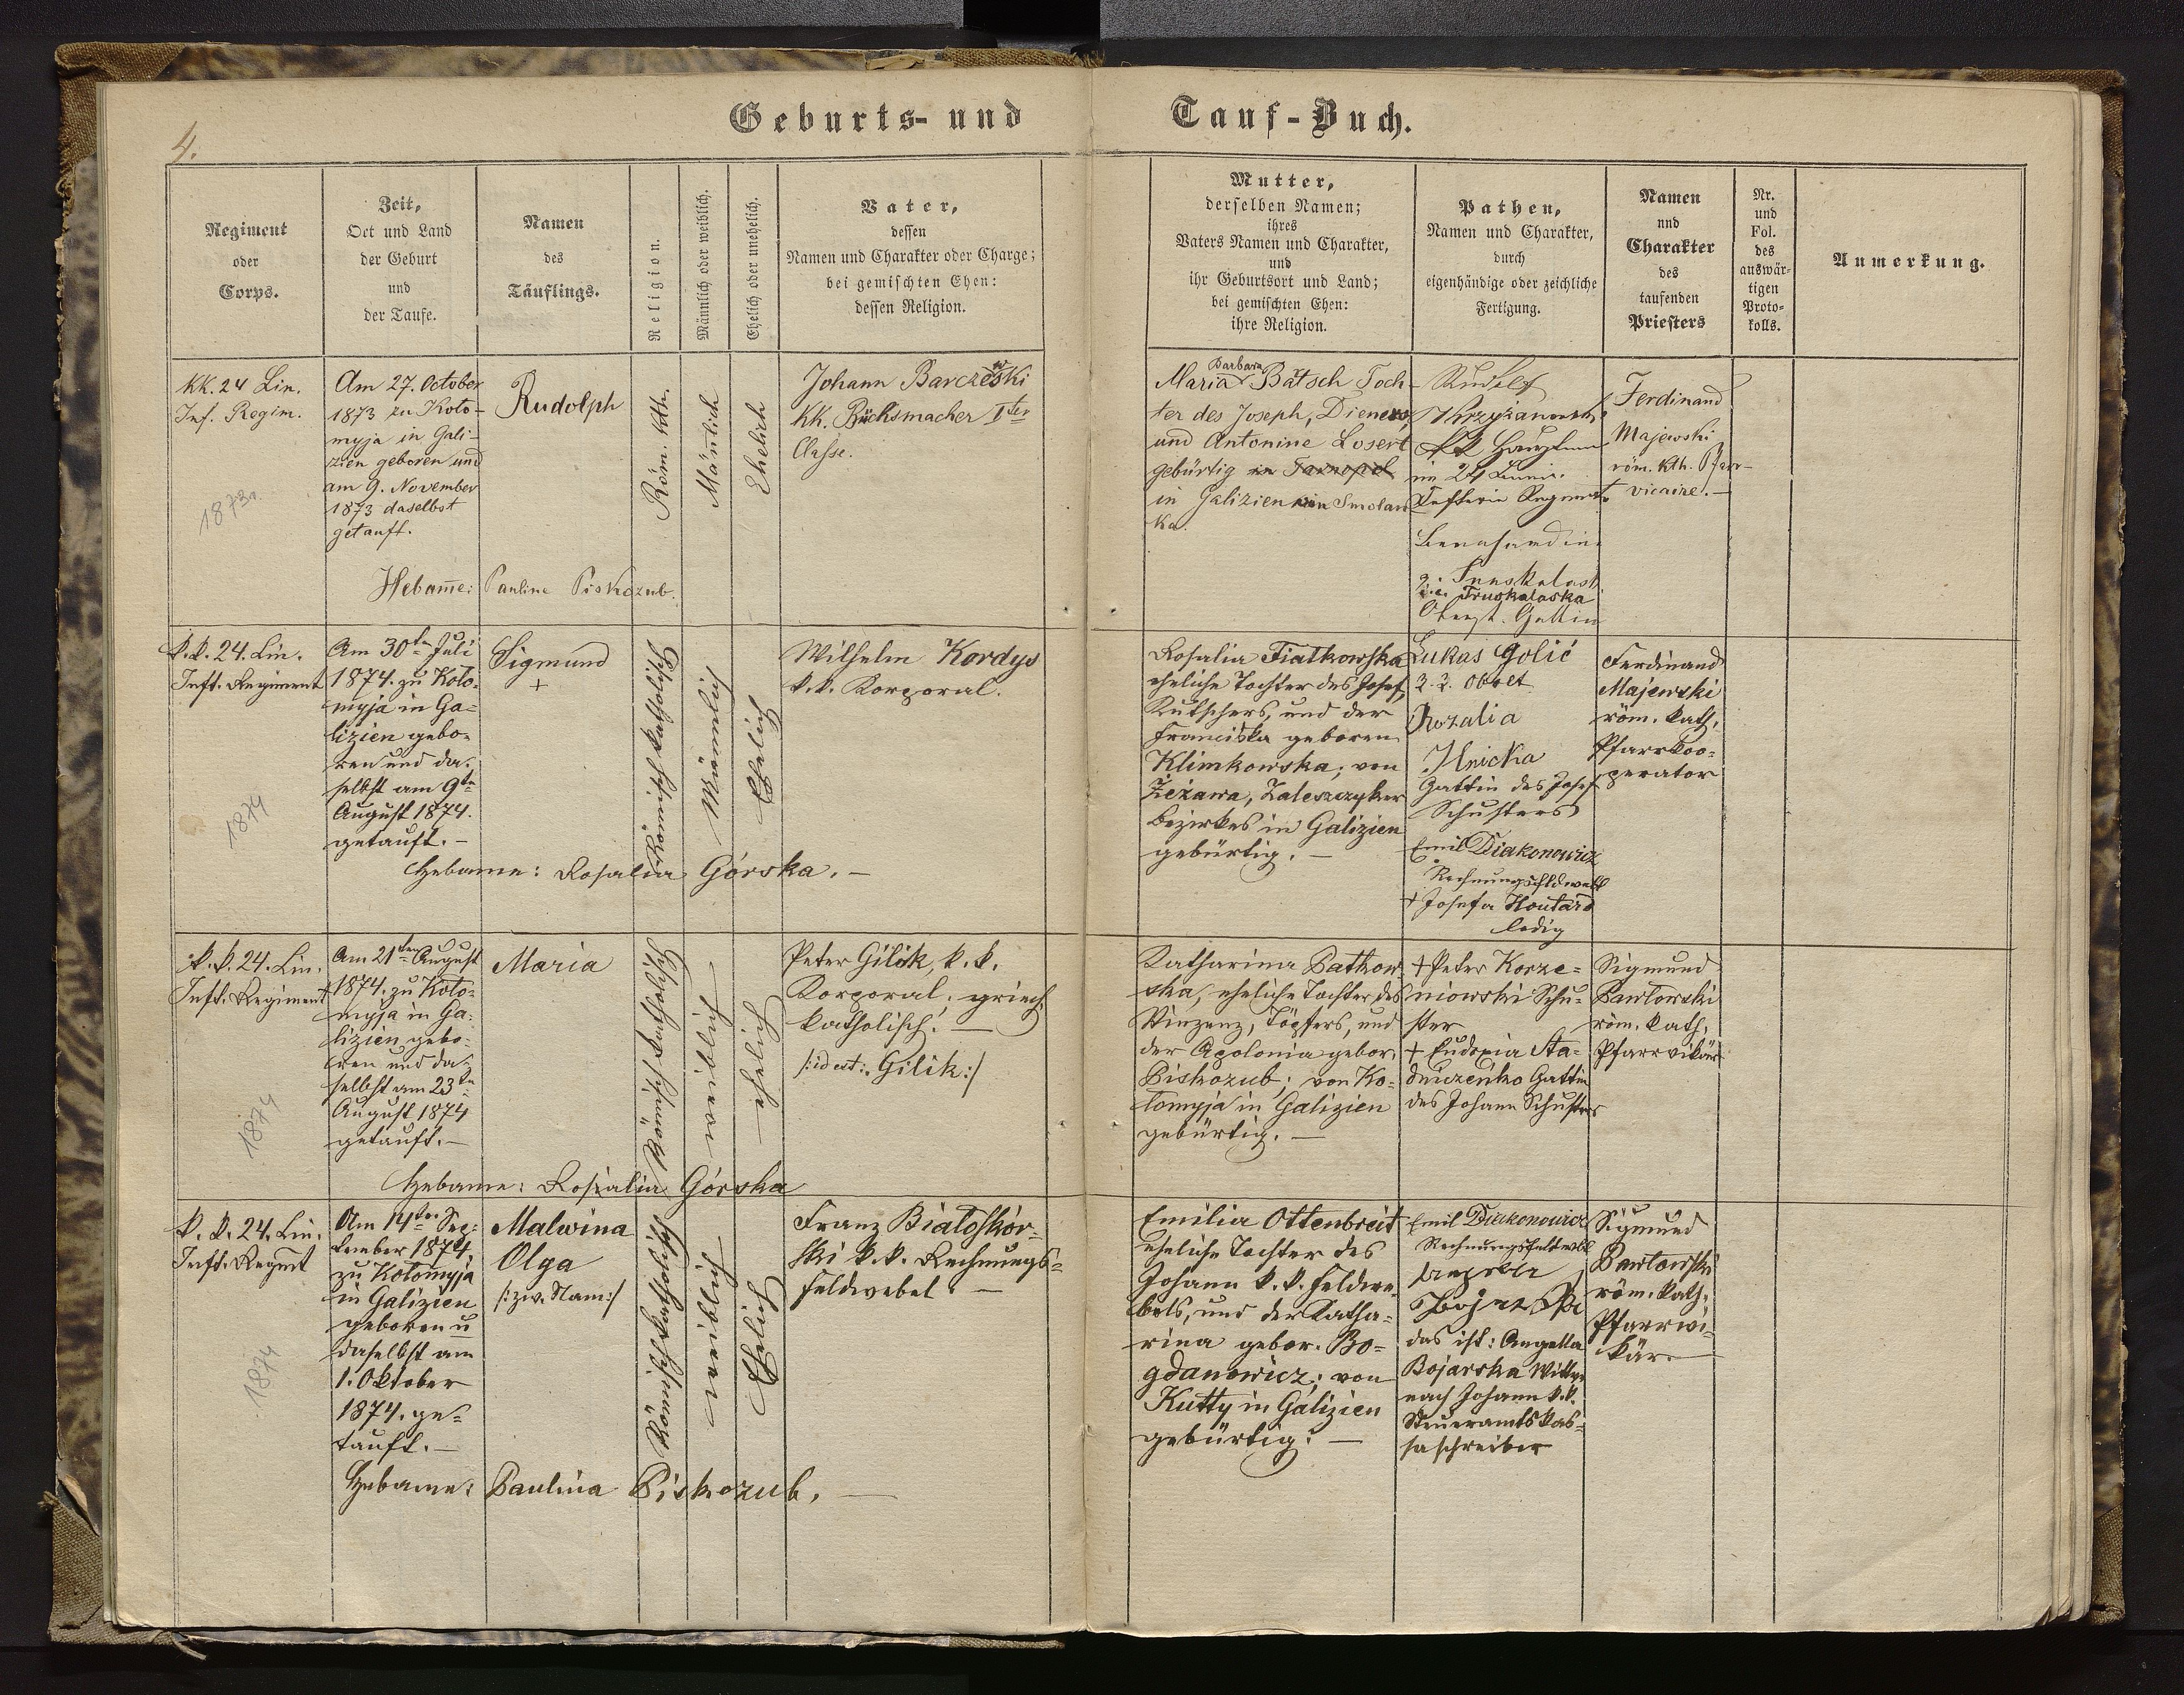 4.
Geburts- und Tauf-Buch.
Regiment
oder
Corps.
Zeit,
Ort und Land
der Geburt
und
der Taufe.
Namen
des
Täuflings.
Religion.
Männlich oder weiblich.
Ehelich oder unehelich.
Vater,
dessen
Namen und Charakter oder Charge;
bei gemischten Ehen:
dessen Religion.
Mutter,
derselben Namen;
ihres
Vaters Namen und Charakter,
und
ihr Geburtsort und Land;
bei gemischten Ehen:
ihre Religion.
Pathen,
Namen und Charakter,
durch
eigenhändige oder zeichliche
Fertigung.
Namen
und
Charakter
des
taufenden
Priesters
Nr.
und
Fol.
des
auswär-
tigen
Proto-
kolls.
Anmerkung.
KK. 24 Lin.
Inf. Regim.
1873
Am 27. October
1873 zu Koło-
myja in Gali-
zien geboren und
am 9. November
1873 daselbst
getauft.
Rudolph
Röm. kth.
Mänlich
Ehelich
Johann Barczewski
KK. Büchsmacher Iter
Classe.
Hebam̄e: Pauline Piskozub.
Barbara
Maria Batsch Toch-
ter des Joseph, Dieners,
und Antonine Losert
gebürtig in Tarnopol
in Galizien in Smolan
ka.
Rudolf
Krzyżanowski
KK Hauptmann
im 24 Linien
Infterie Regmt
Bernhardine
Truskalaska
i.e. Truskalaska
Oberst. Gattin
Ferdinand
Majewski
röm. kth. Pfarr-
vicaire.—
k.k. 24. Lin.
Inft. Regiment
1874
Am 30ten Juli
1874. zu Koło-
myja in Ga=
lizien gebo-
ren und da-
selbst am 9ten
August 1874.
getauft.—
Sigmund
+
Römisch katholisch
Männlich
Ehelich
Wilhelm Kordys
k.k. Korporal.
Hebame: Rosalia Górska.—
Rosalia Fiatkowska
eheliche Tochter des Josef,
Kutschers, und der
Franciska geboren
Klimkowska; von
Żeżawa, Zaleszczyker
Bezirkes in Galizien
gebürtig.—
Lukas Golić
k.k. Obolt
Rozalia
Hnicka
Gattin des Josef
Schusters
Emil Diakonowicz
Rechnungsfldwebl
+ Josefa Houtard
ledig
Ferdinand
Majewski
röm. kath.
Pfarrkoo=
perator
k.k. 24. Lin.
Inft. Regiment
1874
Am 21ten August
1874. zu Koło-
myja in Ga-
lizien gebo-
ren und da-
selbst am 23ten
August 1874
getauft.—
Maria
Römisch katholisch
weiblich
ehelich
Peter Gilok, k.k.
Korporal, griech.
katholisch.—
/:id est: Gilik:/
Hebame: Rosalia Górska
Katharina Patkow-
ska, eheliche Tochter des
Vinzenz, Töpfers, und
der Apolonia gebor.
Piskozub; von Ko-
łomyja in Galizien
gebürtig.—
+ Peter Korze=
niowski Schu-
ster
+ Eudoxia Sta=
dniczeńko Gattin
des Johann Schusters
Sigmund
Pawłowski
röm. kath.
Pfarrvikär
k.k. 24. Lin.
Inft. Regmt
1874
Am 14ten Sep-
tember 1874.
zu Kołomyja
in Galizien
geboren u
daselbst am
1. Oktober
1874. ge=
tauft.—
Malwina
Olga
/:zw. Nam:/
Römisch katholisch
weiblich
Ehelich
Franz Białoskór-
ski k.k. Rechnungs=
feldwebel —
Hebame: Paulina Piskozub,—
Emilia Ottenbreit
eheliche Tochter des
Johann k.k. Feldwe-
bels, und der Katha-
rina gebor. Bo=
gdanowicz; von
Kutty in Galizien
gebürtig.—
Emil Diakonowicz
Rechnungsfeldwbl
Bojarska
das ist: Angella
Bojarska Wittwe
nach Johann k.k.
Steueramtskas=
saschreiber
Sigmund
Pawłowski
röm. kath.
Pfarrvi-
kär.—